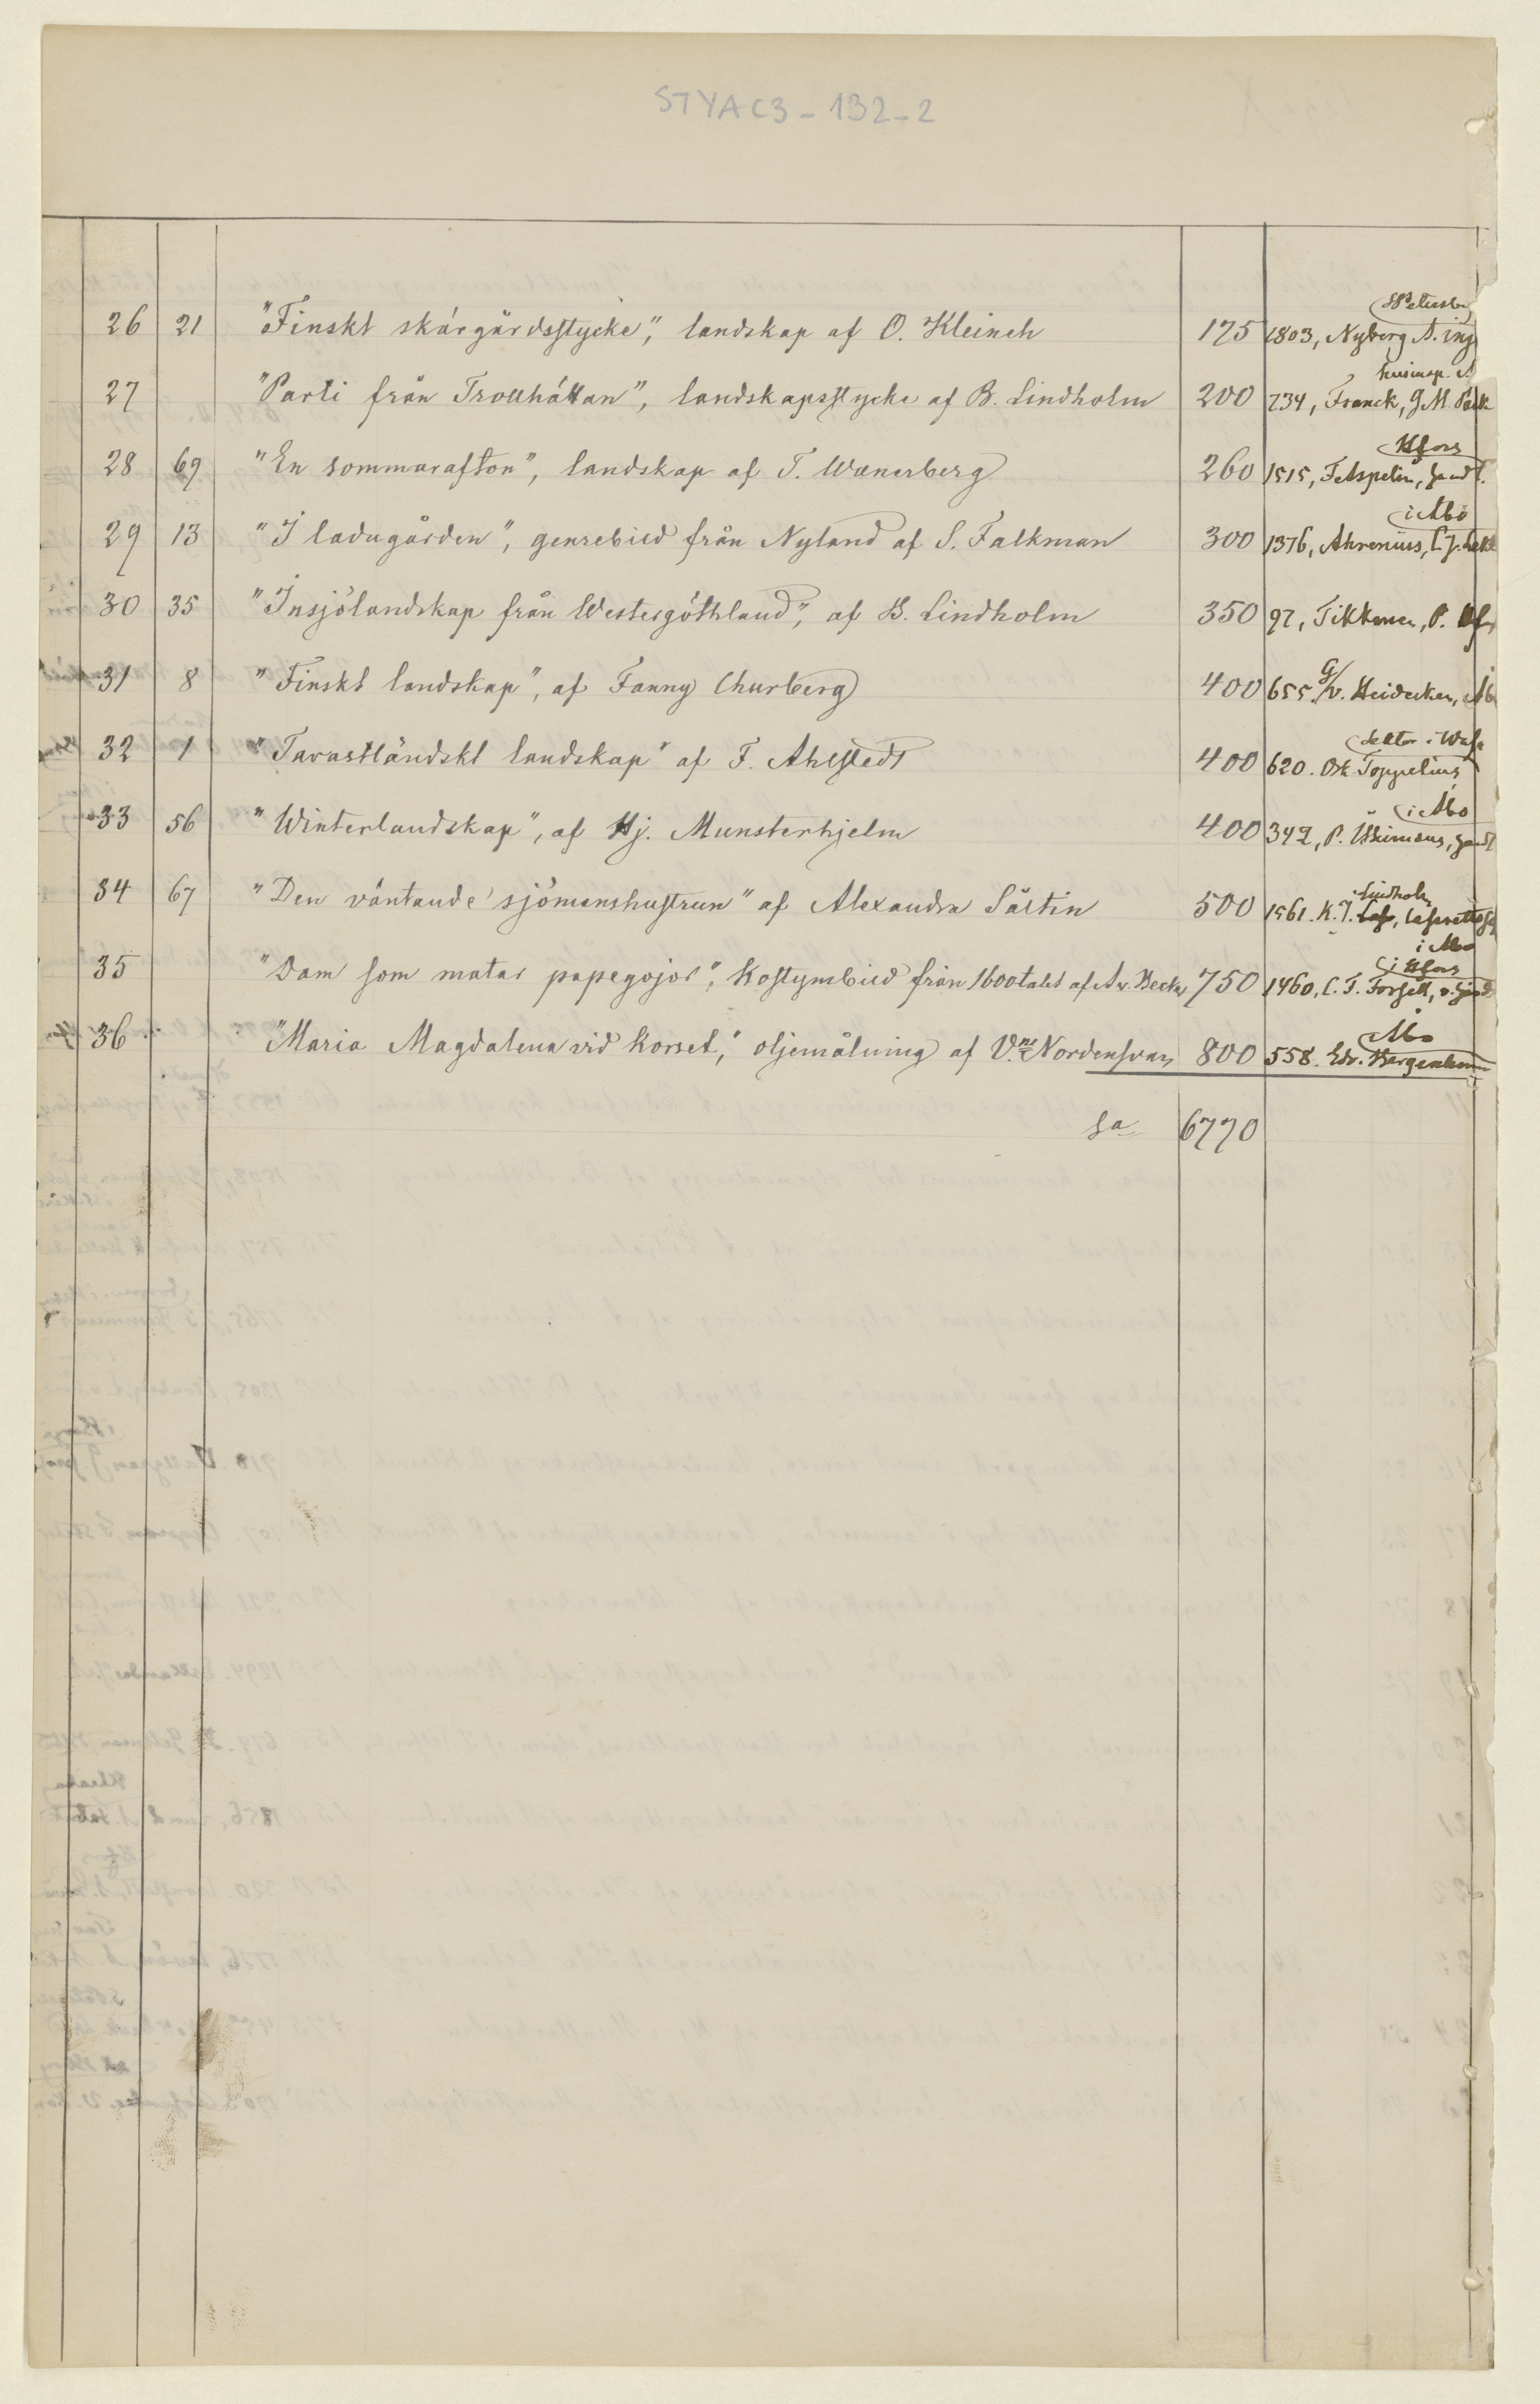 STYA C3 - 132 - 2
26 21 "Finskt skärgårdsstycke", landskap af O. Kleineh 175 1803, Nyberg A. ing
27 "Parti från Trollhättan", landskapsstycke af B. Lindholm 200 734, Franck, G M
28 69 "En sommarafton", landskap af T. Wænerberg 260 1515, F Aspelin, handl.
Hfors
29 13 "I ladugården", genrebild från Nyland af S. Falkman 300 1376, Ahrenius, C. J.
i Åbo
30 35 "Insjölandskap från Westergöthland", af B. Lindholm 350 97, Tikkanen, P. Hfors
31 8 "Finskt landskap", af Fanny Churberg 400 655. G/v. Heideken, Åbo
32 1 "Tavastländskt landskap" af F. Ahlstedt 400 620. Osk. Toppelius
lektor i Wasa
33 56 "Winterlandskap", af Hj. Munsterhjelm 400 342, P.
i Åbo
34 67 "Den väntande sjömanshustrun" af Alexandra Såltin 500 1561. K. J.
Lindholm
i Åbo
35 "Dam som matar papegojor", kostymbild från 1600talet af A v. Becker 750 1460, C. T. Forsell, v. härads
i Hfors
36 "Maria Magdalena vid korset," oljemålning af V. Nordensvan 800 558. Edv. Bergenheim
Åbo
Sa 6770